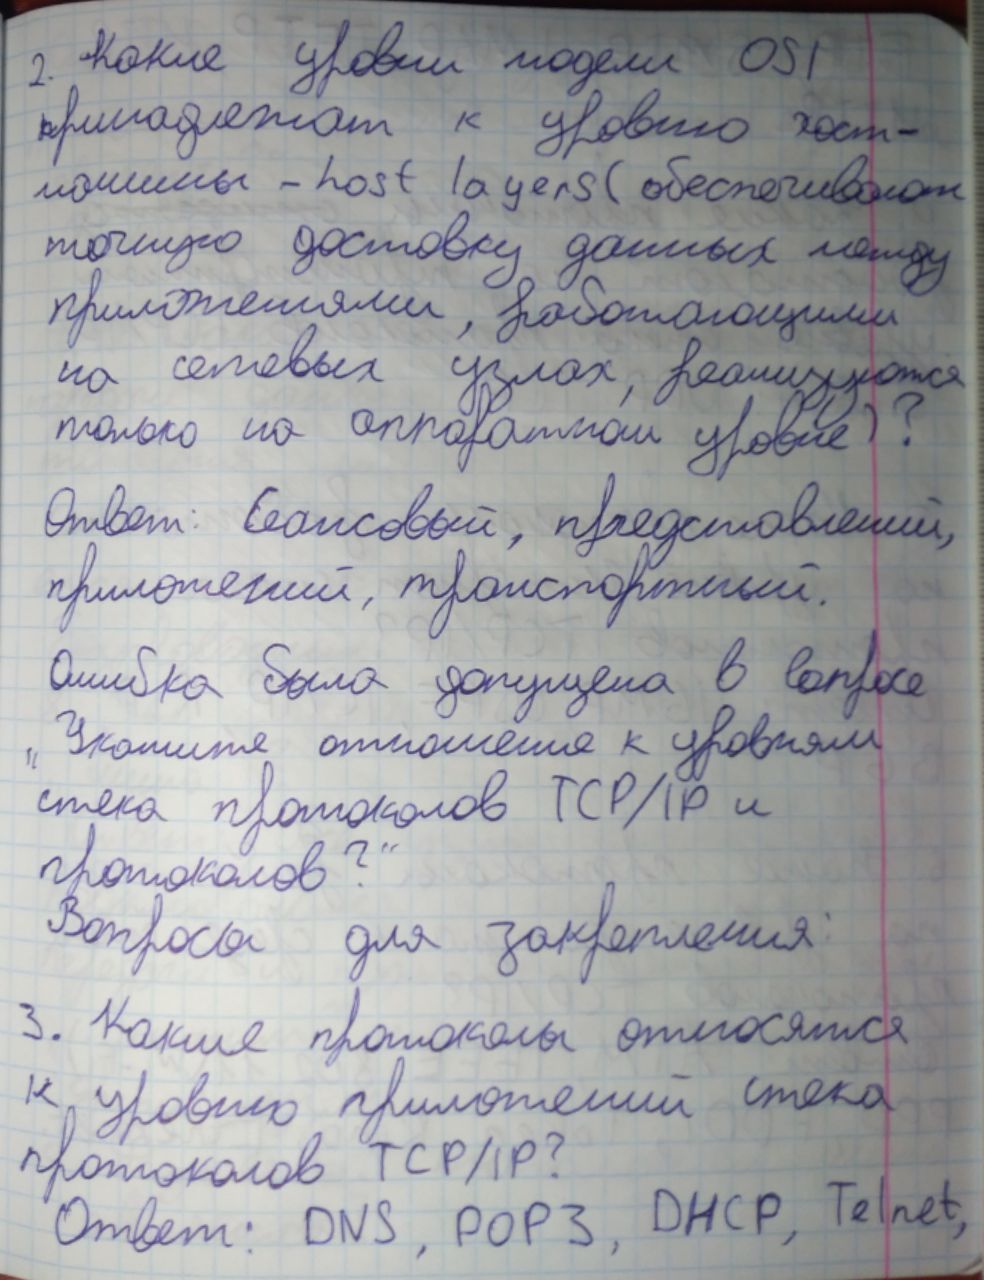 2. Какие уровни модели OSI
принадлежат к уровню хост-
машины - host layers (обеспечивают
точную доставку данных между
приложениями, работающими
на сетевых узлах, реализуются
только на аппаратном уровне)?
Ответ: Сеансовый, представлений,
приложений, транспортный.
Ошибка была допущена в вопросе
„Укажите отношение к уровням
стека протоколов TCP/IP и
протоколов?“
Вопросы для закрепления:
3. Какие протоколы относятся
к уровню приложений стека
протоколов TCP/IP?
Ответ: DNS, POP3, DHCP, Telnet,